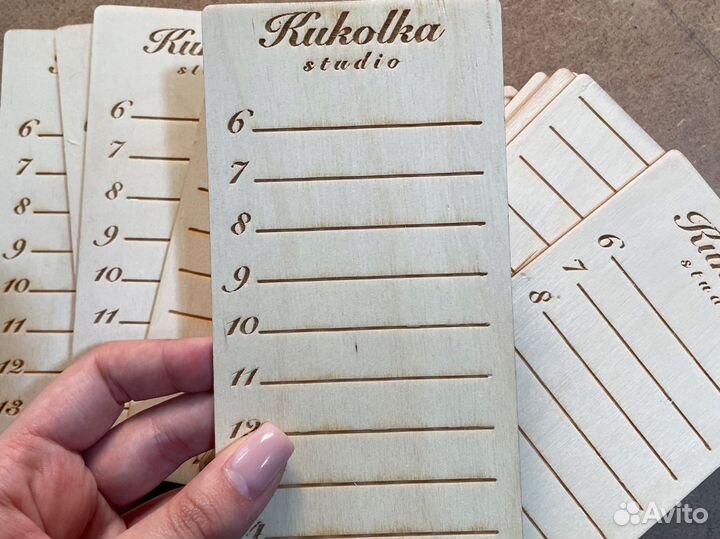 Kukolka
studio
6
7
8
9
10
11
12
6
7
8
9
10
11
12
13
6
7
8
9
10
11
Kuk
studio
6
7
8
Avito